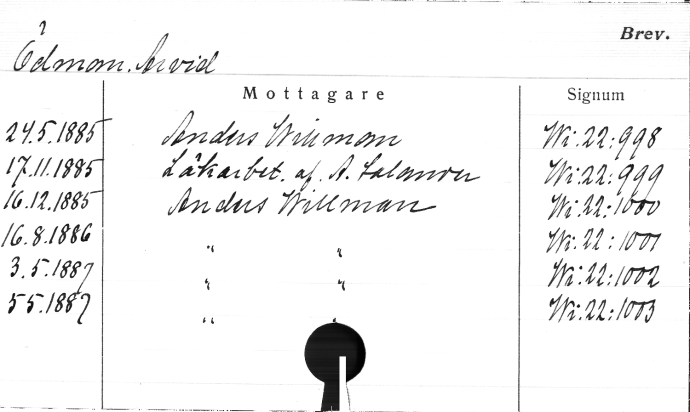 Brev.
Ödmom. Arvid
Mottagare Signum
24.5.1885 Anders Willman Wi.22:998
17.11.1885 Läkarbet. af. A. Wi.22:999
16.12.1885 Anders Willman Wi.22:1000
16.8.1886 " " Wi.22:1001
3.5.1887 " " Wi.22:1002
5.5.1887 " " Wi.22:1003